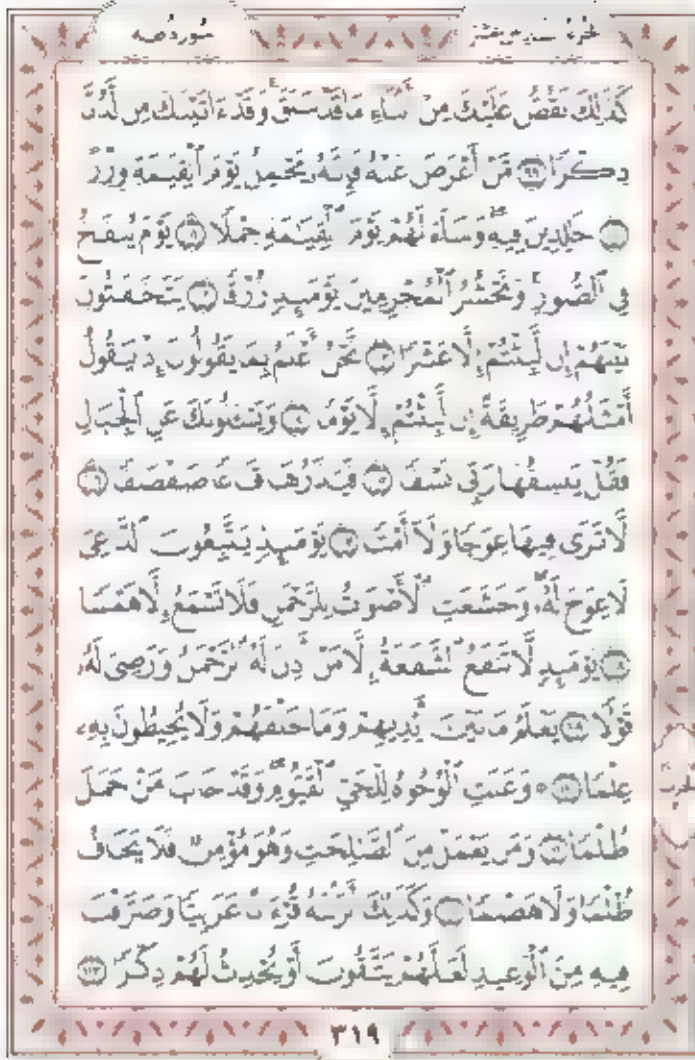 سُورَةُ طه
الجُزءُ السَّادِسَ عَشَرَ
كَذَٰلِكَ نَقُصُّ عَلَيْكَ مِنْ أَنۢبَآءِ مَا قَدْ سَبَقَ ۚ وَقَدْ ءَاتَيْنَٰكَ مِن لَّدُنَّا
ذِكْرًا ﴿٩٩﴾ مَّنْ أَعْرَضَ عَنْهُ فَإِنَّهُۥ يَحْمِلُ يَوْمَ ٱلْقِيَٰمَةِ وِزْرًا
﴿١٠٠﴾ خَٰلِدِينَ فِيهِ ۖ وَسَآءَ لَهُمْ يَوْمَ ٱلْقِيَٰمَةِ حِمْلًا ﴿١٠١﴾ يَوْمَ يُنفَخُ
فِى ٱلصُّورِ ۚ وَنَحْشُرُ ٱلْمُجْرِمِينَ يَوْمَئِذٍ زُرْقًا ﴿١٠٢﴾ يَتَخَٰفَتُونَ
بَيْنَهُمْ إِن لَّبِثْتُمْ إِلَّا عَشْرًا ﴿١٠٣﴾ نَّحْنُ أَعْلَمُ بِمَا يَقُولُونَ إِذْ يَقُولُ
أَمْثَلُهُمْ طَرِيقَةً إِن لَّبِثْتُمْ إِلَّا يَوْمًا ﴿١٠٤﴾ وَيَسْـَٔلُونَكَ عَنِ ٱلْجِبَالِ
فَقُلْ يَنسِفُهَا رَبِّى نَسْفًا ﴿١٠٥﴾ فَيَذَرُهَا قَاعًا صَفْصَفًا ﴿١٠٦﴾
لَّا تَرَىٰ فِيهَا عِوَجًا وَلَآ أَمْتًا ﴿١٠٧﴾ يَوْمَئِذٍ يَتَّبِعُونَ ٱلدَّاعِىَ
لَا عِوَجَ لَهُۥ ۖ وَخَشَعَتِ ٱلْأَصْوَاتُ لِلرَّحْمَٰنِ فَلَا تَسْمَعُ إِلَّا هَمْسًا
﴿١٠٨﴾ يَوْمَئِذٍ لَّا تَنفَعُ ٱلشَّفَٰعَةُ إِلَّا مَنْ أَذِنَ لَهُ ٱلرَّحْمَٰنُ وَرَضِىَ لَهُۥ
قَوْلًا ﴿١٠٩﴾ يَعْلَمُ مَا بَيْنَ أَيْدِيهِمْ وَمَا خَلْفَهُمْ وَلَا يُحِيطُونَ بِهِۦ
عِلْمًا ﴿١١٠﴾ ۞ وَعَنَتِ ٱلْوُجُوهُ لِلْحَىِّ ٱلْقَيُّومِ ۖ وَقَدْ خَابَ مَنْ حَمَلَ
ظُلْمًا ﴿١١١﴾ وَمَن يَعْمَلْ مِنَ ٱلصَّٰلِحَٰتِ وَهُوَ مُؤْمِنٌ فَلَا يَخَافُ
ظُلْمًا وَلَا هَضْمًا ﴿١١٢﴾ وَكَذَٰلِكَ أَنزَلْنَٰهُ قُرْءَانًا عَرَبِيًّا وَصَرَّفْنَا
فِيهِ مِنَ ٱلْوَعِيدِ لَعَلَّهُمْ يَتَّقُونَ أَوْ يُحْدِثُ لَهُمْ ذِكْرًا ﴿١١٣﴾
الحزب
٣١٩